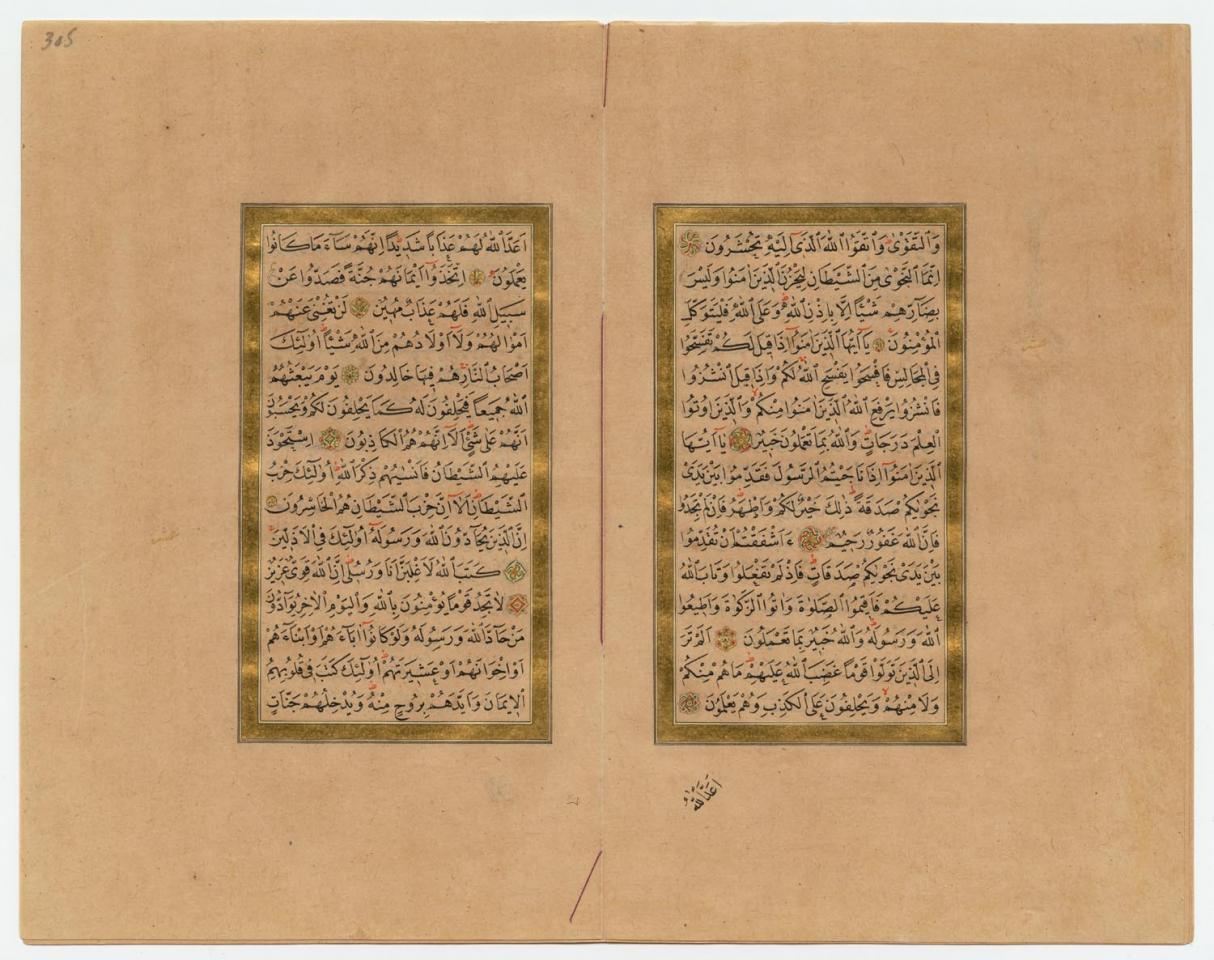 وَالتَّقْوٰىۜ وَاتَّقُوا اللّٰهَ الَّذ۪ٓي اِلَيْهِ تُحْشَرُونَ
اِنَّمَا النَّجْوٰى مِنَ الشَّيْطَانِ لِيَحْزُنَ الَّذ۪ينَ اٰمَنُوا وَلَيْسَ
بِضَٓارِّهِمْ شَيْـًٔا اِلَّا بِاِذْنِ اللّٰهِۜ وَعَلَى اللّٰهِ فَلْيَتَوَكَّلِ
الْمُؤْمِنُونَ يَٓا اَيُّهَا الَّذ۪ينَ اٰمَنُٓوا اِذَا ق۪يلَ لَكُمْ تَفَسَّحُوا
فِي الْمَجَالِسِ فَافْسَحُوا يَفْسَحِ اللّٰهُ لَكُمْۚ وَاِذَا ق۪يلَ انْشُزُوا
فَانْشُزُوا يَرْفَعِ اللّٰهُ الَّذ۪ينَ اٰمَنُوا مِنْكُمْۙ وَالَّذ۪ينَ اُو۫تُوا
الْعِلْمَ دَرَجَاتٍۜ وَاللّٰهُ بِمَا تَعْمَلُونَ خَب۪يرٌ يَٓا اَيُّهَا
الَّذ۪ينَ اٰمَنُٓوا اِذَا نَاجَيْتُمُ الرَّسُولَ فَقَدِّمُوا بَيْنَ يَدَيْ
نَجْوٰيكُمْ صَدَقَةًۜ ذٰلِكَ خَيْرٌ لَكُمْ وَاَطْهَرُۜ فَاِنْ لَمْ تَجِدُوا
فَاِنَّ اللّٰهَ غَفُورٌ رَح۪يمٌ ءَاَشْفَقْتُمْ اَنْ تُقَدِّمُوا
بَيْنَ يَدَيْ نَجْوٰيكُمْ صَدَقَاتٍۜ فَاِذْ لَمْ تَفْعَلُوا وَتَابَ اللّٰهُ
عَلَيْكُمْ فَاَق۪يمُوا الصَّلٰوةَ وَاٰتُوا الزَّكٰوةَ وَاَط۪يعُوا
اللّٰهَ وَرَسُولَهُۜ وَاللّٰهُ خَب۪يرٌ بِمَا تَعْمَلُونَ اَلَمْ تَرَ
اِلَى الَّذ۪ينَ تَوَلَّوْا قَوْمًا غَضِبَ اللّٰهُ عَلَيْهِمْۜ مَا هُمْ مِنْكُمْ
وَلَا مِنْهُمْۙ وَيَحْلِفُونَ عَلَى الْكَذِبِ وَهُمْ يَعْلَمُونَ
اَعَدَّ اللّٰهُ
305
اَعَدَّ اللّٰهُ لَهُمْ عَذَابًا شَد۪يدًاۜ اِنَّهُمْ سَٓاءَ مَا كَانُوا
يَعْمَلُونَ اِتَّخَذُٓوا اَيْمَانَهُمْ جُنَّةً فَصَدُّوا عَنْ
سَب۪يلِ اللّٰهِ فَلَهُمْ عَذَابٌ مُه۪ينٌ لَنْ تُغْنِيَ عَنْهُمْ
اَمْوَالُهُمْ وَلَٓا اَوْلَادُهُمْ مِنَ اللّٰهِ شَيْـًٔاۜ اُو۬لٰٓئِكَ
اَصْحَابُ النَّارِۜ هُمْ ف۪يهَا خَالِدُونَ يَوْمَ يَبْعَثُهُمُ
اللّٰهُ جَم۪يعًا فَيَحْلِفُونَ لَهُ كَمَا يَحْلِفُونَ لَكُمْ وَيَحْسَبُونَ
اَنَّهُمْ عَلٰى شَيْءٍۜ اَلَٓا اِنَّهُمْ هُمُ الْكَاذِبُونَ اِسْتَحْوَذَ
عَلَيْهِمُ الشَّيْطَانُ فَاَنْسٰيهُمْ ذِكْرَ اللّٰهِۜ اُو۬لٰٓئِكَ حِزْبُ
الشَّيْطَانِۜ اَلَٓا اِنَّ حِزْبَ الشَّيْطَانِ هُمُ الْخَاسِرُونَ
اِنَّ الَّذ۪ينَ يُحَٓادُّونَ اللّٰهَ وَرَسُولَهُٓ اُو۬لٰٓئِكَ فِي الْاَذَلّ۪ينَ
كَتَبَ اللّٰهُ لَاَغْلِبَنَّ اَنَا۬ وَرُسُل۪يۜ اِنَّ اللّٰهَ قَوِيٌّ عَز۪يزٌ
لَا تَجِدُ قَوْمًا يُؤْمِنُونَ بِاللّٰهِ وَالْيَوْمِ الْاٰخِرِ يُوَٓادُّونَ
مَنْ حَٓادَّ اللّٰهَ وَرَسُولَهُ وَلَوْ كَانُٓوا اٰبَٓاءَهُمْ اَوْ اَبْنَٓاءَهُمْ
اَوْ اِخْوَانَهُمْ اَوْ عَش۪يرَتَهُمْۜ اُو۬لٰٓئِكَ كَتَبَ ف۪ي قُلُوبِهِمُ
الْا۪يمَانَ وَاَيَّدَهُمْ بِرُوحٍ مِنْهُۜ وَيُدْخِلُهُمْ جَنَّاتٍ